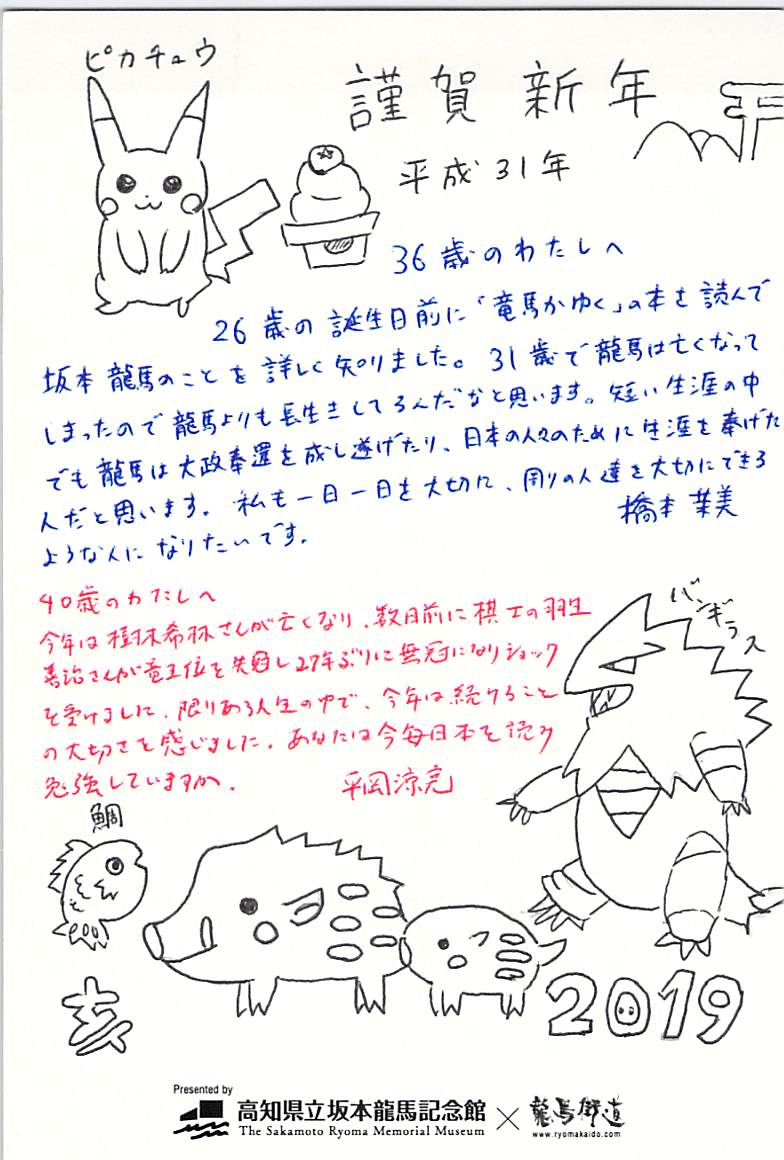 ピカチュウ
謹賀新年
平成31年
36歳のわたしへ
26歳の誕生日前に「竜馬がゆく」の本を読んで
坂本龍馬のことを詳しく知りました。31歳で龍馬は亡くなって
しまったので龍馬よりも長生きしてるんだなと思います。短い生涯の中
でも龍馬は大政奉還を成し遂げたり、日本の人々のために生涯を奉げた
人だと思います。私も一日一日を大切に、周りの人達を大切にできる
ような人になりたいです。
橋本 茉美
40歳のわたしへ
今年は樹木希林さんが亡くなり、数日前に棋士の羽生
善治さんが竜王位を失冠し27年ぶりに無冠になりショック
を受けました。限りある人生の中で、今年は続けること
の大切さを感じました。あなたは今毎日本を読み
勉強していますか。
平岡涼亮
バンギラス
鯛
亥
2019
Presented by
高知県立坂本龍馬記念館 × 龍馬街道
The Sakamoto Ryoma Memorial Museum
www.ryomakaido.com